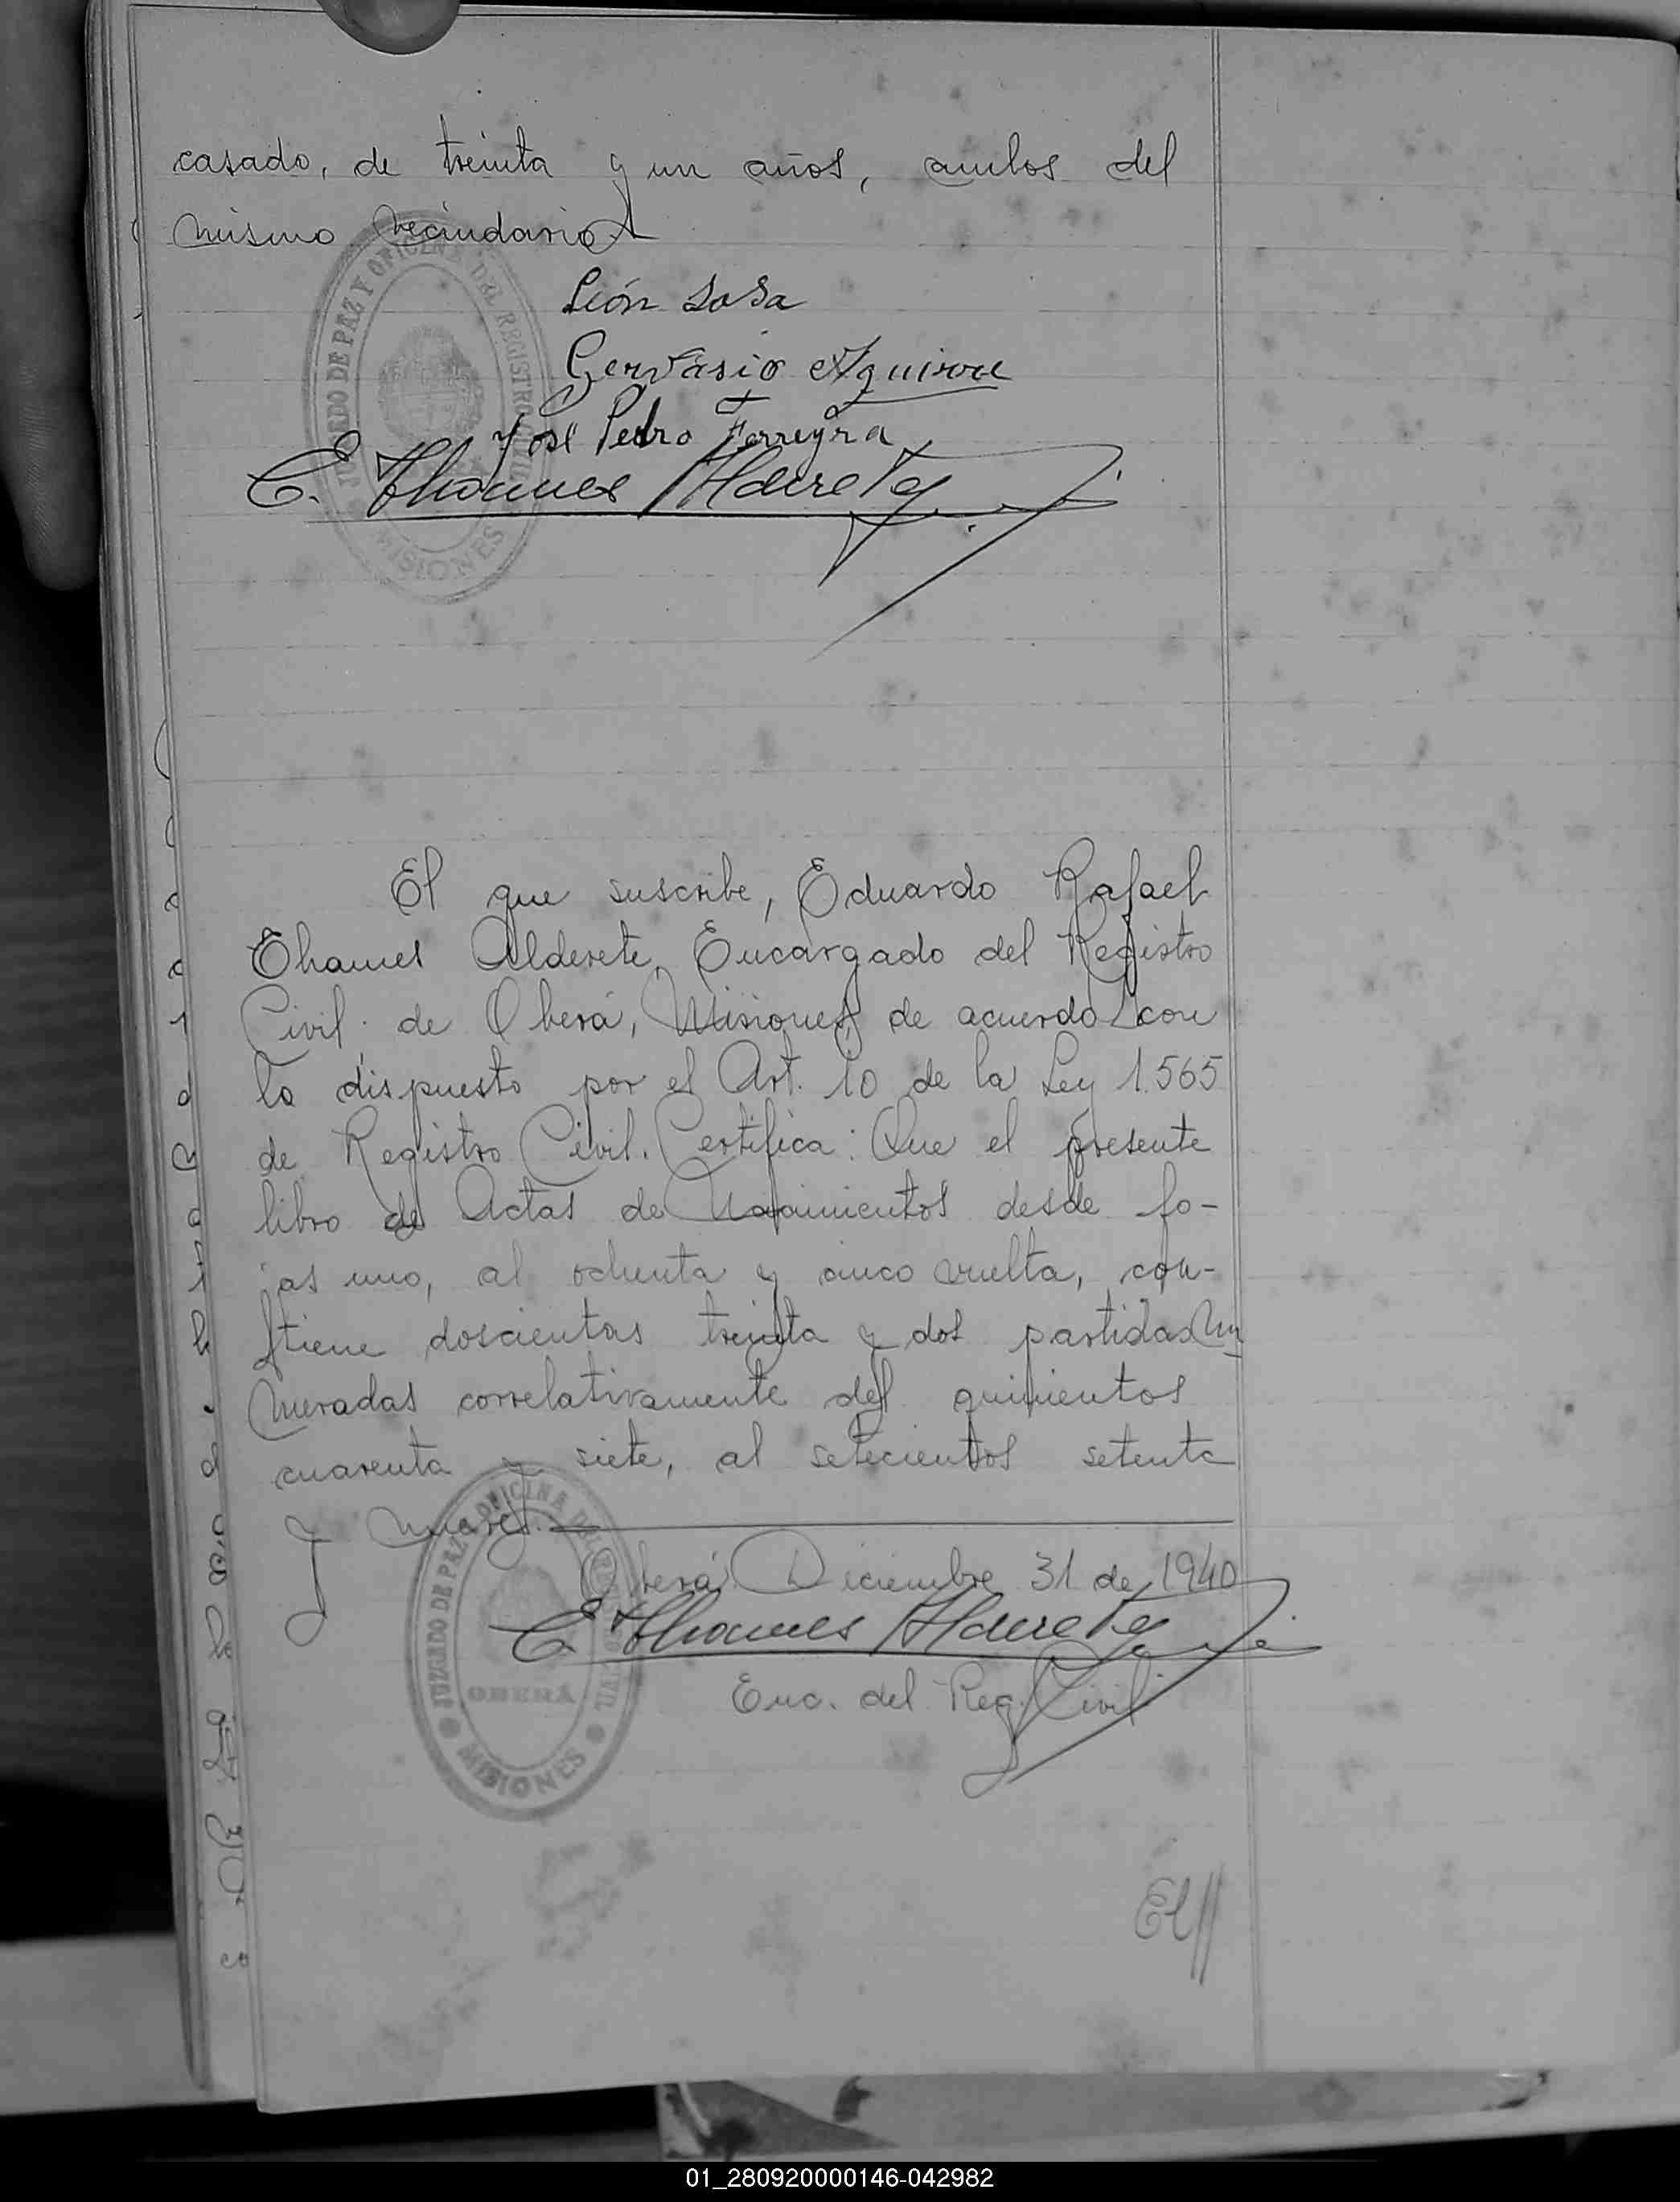 casado, de treinta y un años, ambos del
mismo vecindario
JUZGADO DE PAZ Y OFICINA DEL REGISTRO CIVIL
MISIONES
León Sosa
Gervasio Aguirre
José Pedro Ferreyra
E. Thames Alderete
El que suscribe, Eduardo Rafael
Thames Alderete, Encargado del Registro
Civil de Oberá, Misiones, de acuerdo con
lo dispuesto por el Art. 10 de la Ley 1.565
de Registro Civil. Certifica: Que el presente
libro de Actas de Nacimientos desde fo-
jas uno, al ochenta y cinco vuelta, con-
tiene doscientas treinta y dos partidas nu
meradas correlativamente del quinientos
cuarenta y siete, al setecientos setenta
y nueve.
Oberá Diciembre 31 de 1940
E Thames Alderete
Enc. del Reg. Civil
JUZGADO DE PAZ Y OFICINA DEL REGISTRO CIVIL
OBERÁ
MISIONES
01_280920000146-042982